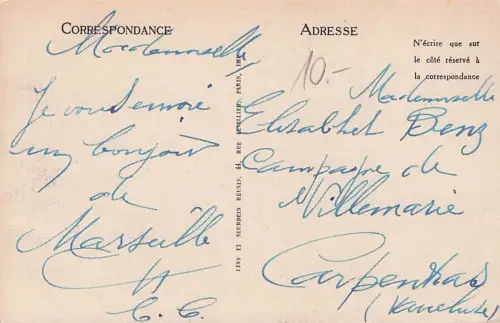 CORRESPONDANCE
Mademoiselle
Je vous envoie
un bonjour
de
Marseille
C. C.
LÉVY ET NEURDEIN RÉUNIS, 44, RUE LETELLIER, PARIS, IMP.
ADRESSE
N'écrire que sur
le côté réservé à
la correspondance
10.-
Mademoiselle
Elisabhet Benz
Campagne de
Villemarie
Carpentras
(Vaucluse)